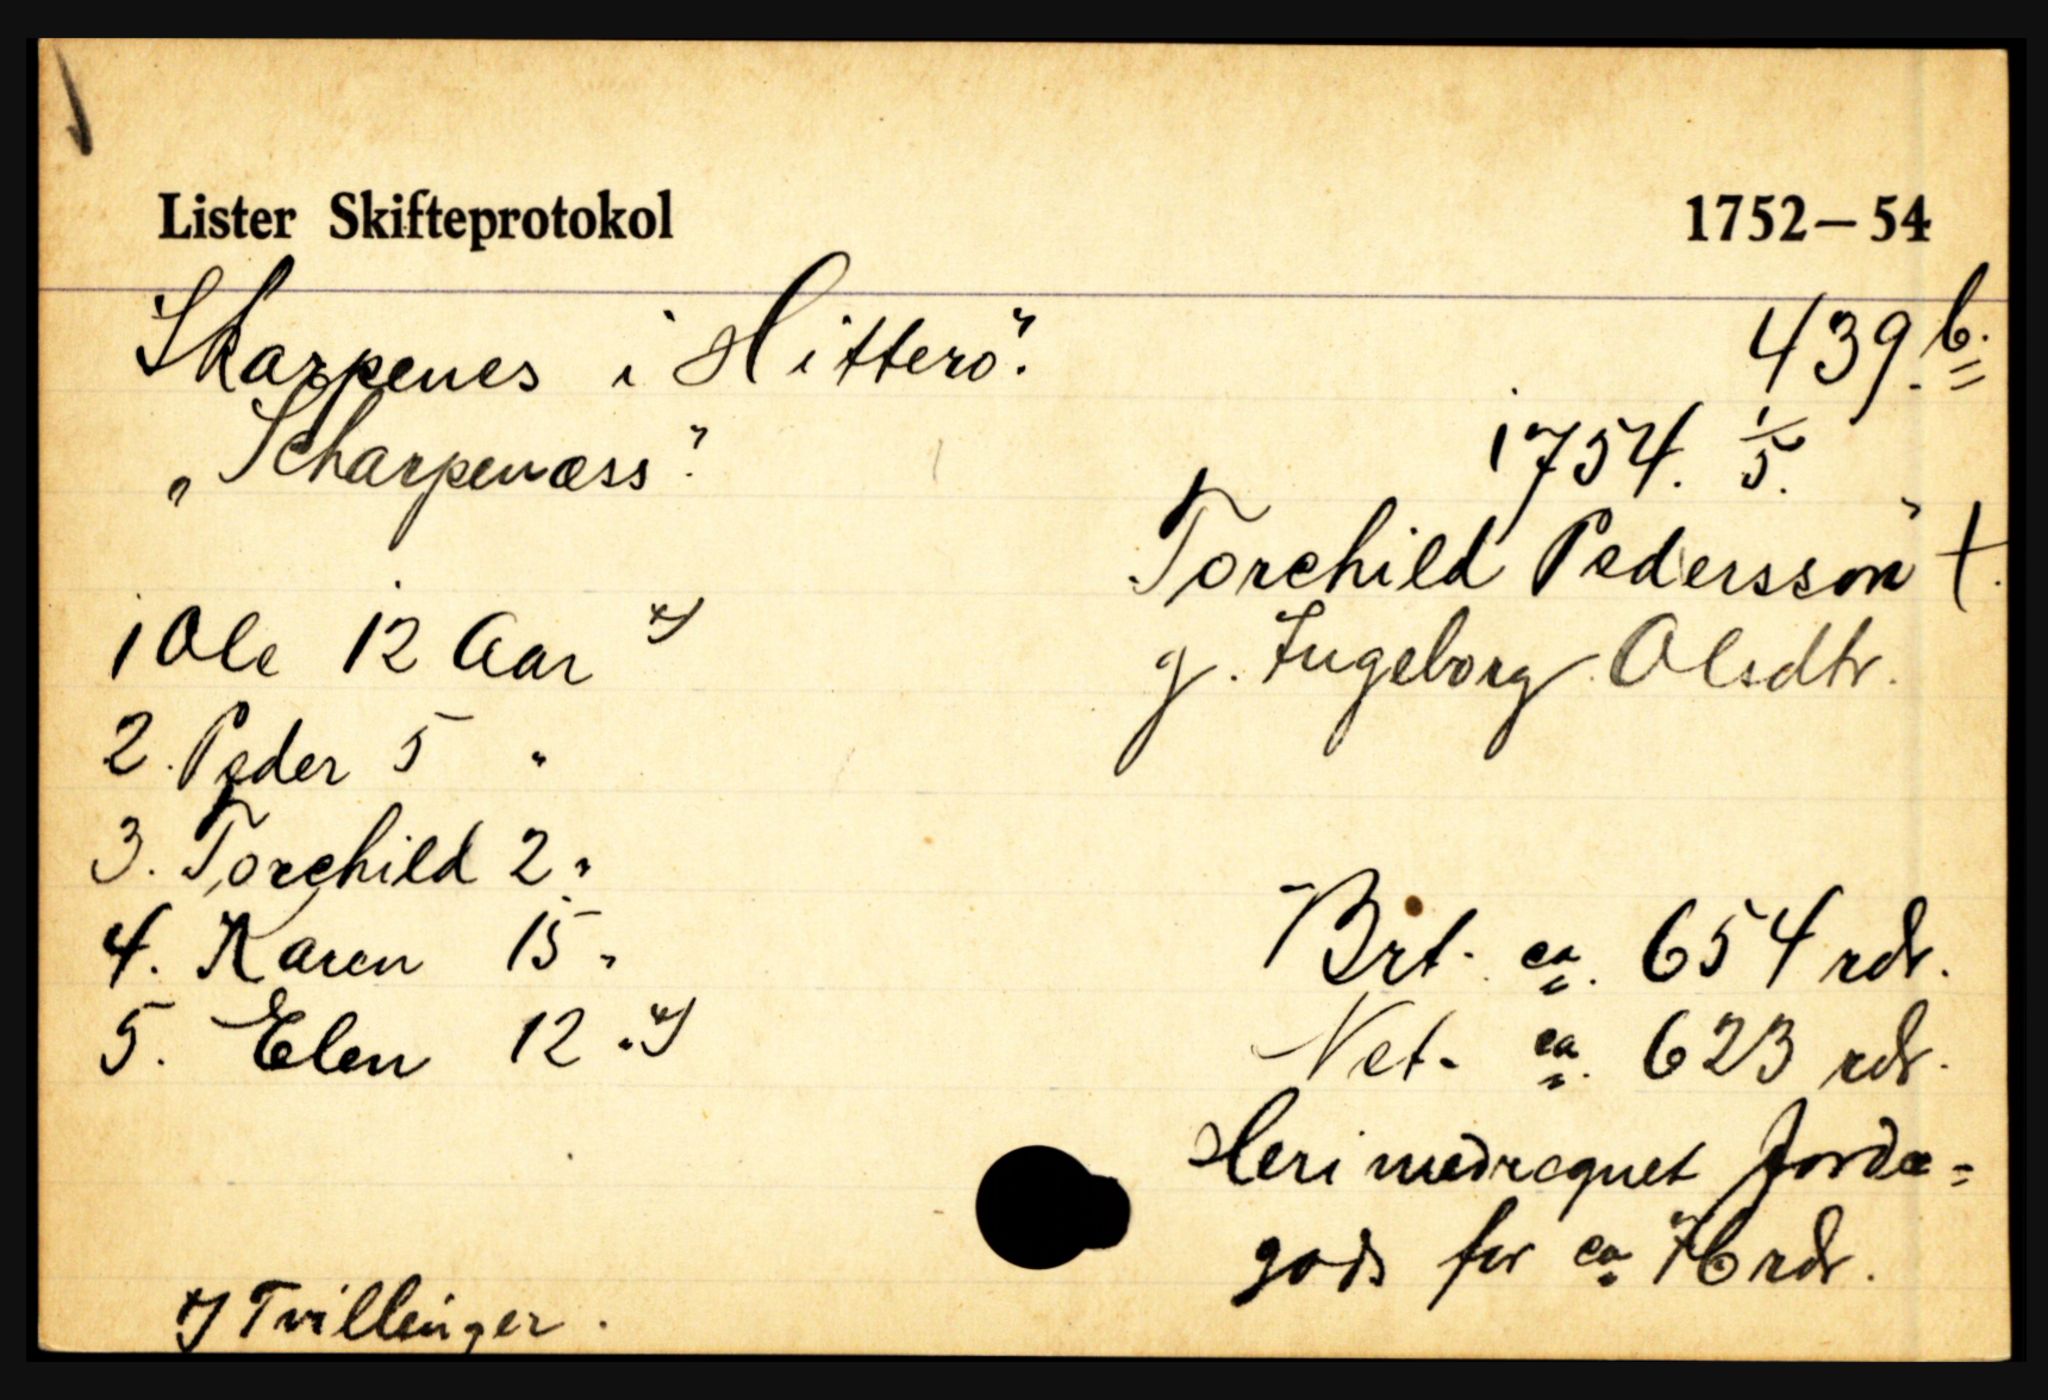 Lister Skifteprotokol 1752—54
Skarpenes i Hitterö. 439.b.
„Scharpenæss". 1754. 1/5.
Torchild Pedersson †.
1 Ole 12 Aar x) g. Ingeborg Olsdtr.
2. Peder 5 "
3. Torchild 2 "
4. Karen 15 " Brt. ca. 654 rdr.
5. Elen 12 " x) Net. ca. 623 rdr.
Heri medregnet Jorde=
gods for ca 76 rdr.
x) Tvillinger.